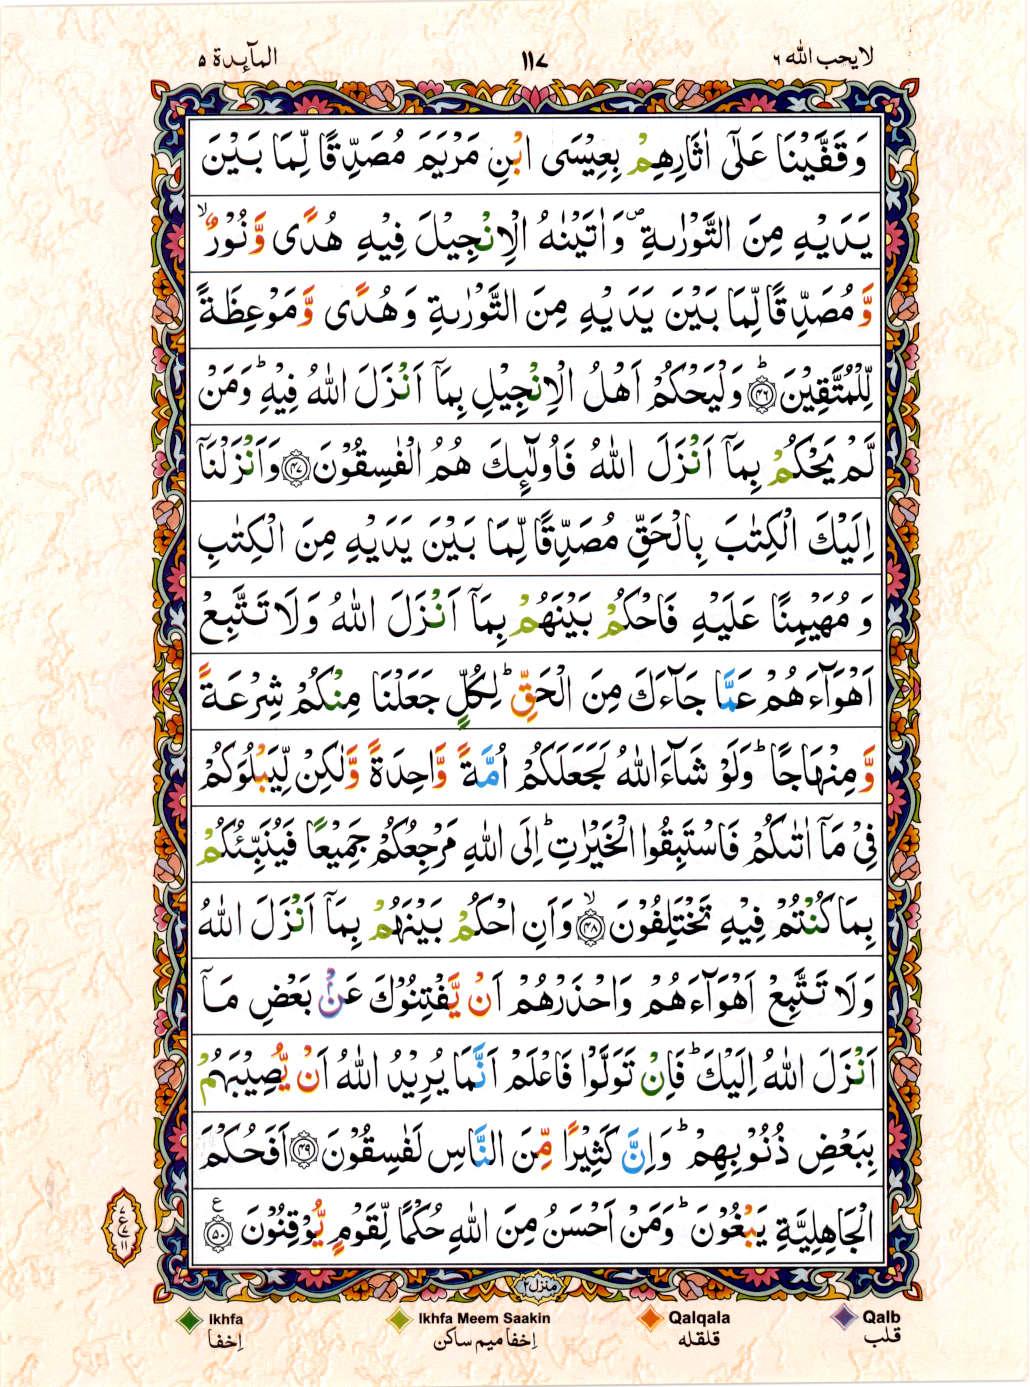 المآئدة ٥
١١٧
لا يحب الله ٦
وَقَفَّيْنَا عَلٰٓى اٰثَارِهِمْ بِعِيْسَى ابْنِ مَرْيَمَ مُصَدِّقًا لِّمَا بَيْنَ
يَدَيْهِ مِنَ التَّوْرٰىةِ ۪ وَاٰتَيْنٰهُ الْاِنْجِيْلَ فِيْهِ هُدًى وَّنُوْرٌ ۙ
وَّمُصَدِّقًا لِّمَا بَيْنَ يَدَيْهِ مِنَ التَّوْرٰىةِ وَهُدًى وَّمَوْعِظَةً
لِّلْمُتَّقِيْنَ ؕ ﴿۴۶﴾ وَلْيَحْكُمْ اَهْلُ الْاِنْجِيْلِ بِمَاۤ اَنْزَلَ اللّٰهُ فِيْهِ ؕ وَمَنْ
لَّمْ يَحْكُمْ بِمَاۤ اَنْزَلَ اللّٰهُ فَاُولٰٓئِكَ هُمُ الْفٰسِقُوْنَ ﴿۴۷﴾ وَاَنْزَلْنَاۤ
اِلَيْكَ الْكِتٰبَ بِالْحَقِّ مُصَدِّقًا لِّمَا بَيْنَ يَدَيْهِ مِنَ الْكِتٰبِ
وَمُهَيْمِنًا عَلَيْهِ فَاحْكُمْ بَيْنَهُمْ بِمَاۤ اَنْزَلَ اللّٰهُ وَلَا تَتَّبِعْ
اَهْوَآءَهُمْ عَمَّا جَآءَكَ مِنَ الْحَقِّ ؕ لِكُلٍّ جَعَلْنَا مِنْكُمْ شِرْعَةً
وَّمِنْهَاجًا ؕ وَلَوْ شَآءَ اللّٰهُ لَجَعَلَكُمْ اُمَّةً وَّاحِدَةً وَّلٰكِنْ لِّيَبْلُوَكُمْ
فِيْ مَاۤ اٰتٰىكُمْ فَاسْتَبِقُوا الْخَيْرٰتِ ؕ اِلَى اللّٰهِ مَرْجِعُكُمْ جَمِيْعًا فَيُنَبِّئُكُمْ
بِمَا كُنْتُمْ فِيْهِ تَخْتَلِفُوْنَ ۙ ﴿۴۸﴾ وَاَنِ احْكُمْ بَيْنَهُمْ بِمَاۤ اَنْزَلَ اللّٰهُ
وَلَا تَتَّبِعْ اَهْوَآءَهُمْ وَاحْذَرْهُمْ اَنْ يَّفْتِنُوْكَ عَنْۢ بَعْضِ مَاۤ
اَنْزَلَ اللّٰهُ اِلَيْكَ ؕ فَاِنْ تَوَلَّوْا فَاعْلَمْ اَنَّمَا يُرِيْدُ اللّٰهُ اَنْ يُّصِيْبَهُمْ
بِبَعْضِ ذُنُوْبِهِمْ ؕ وَاِنَّ كَثِيْرًا مِّنَ النَّاسِ لَفٰسِقُوْنَ ﴿۴۹﴾ اَفَحُكْمَ
الْجَاهِلِيَّةِ يَبْغُوْنَ ؕ وَمَنْ اَحْسَنُ مِنَ اللّٰهِ حُكْمًا لِّقَوْمٍ يُّوْقِنُوْنَ ﴿۵۰﴾ ع
٧ ع ٧ ١١
منزل ٢
Ikhfa Ikhfa Meem Saakin Qalqala Qalb
اِخفا اِخفا میم ساکن قلقله قلب